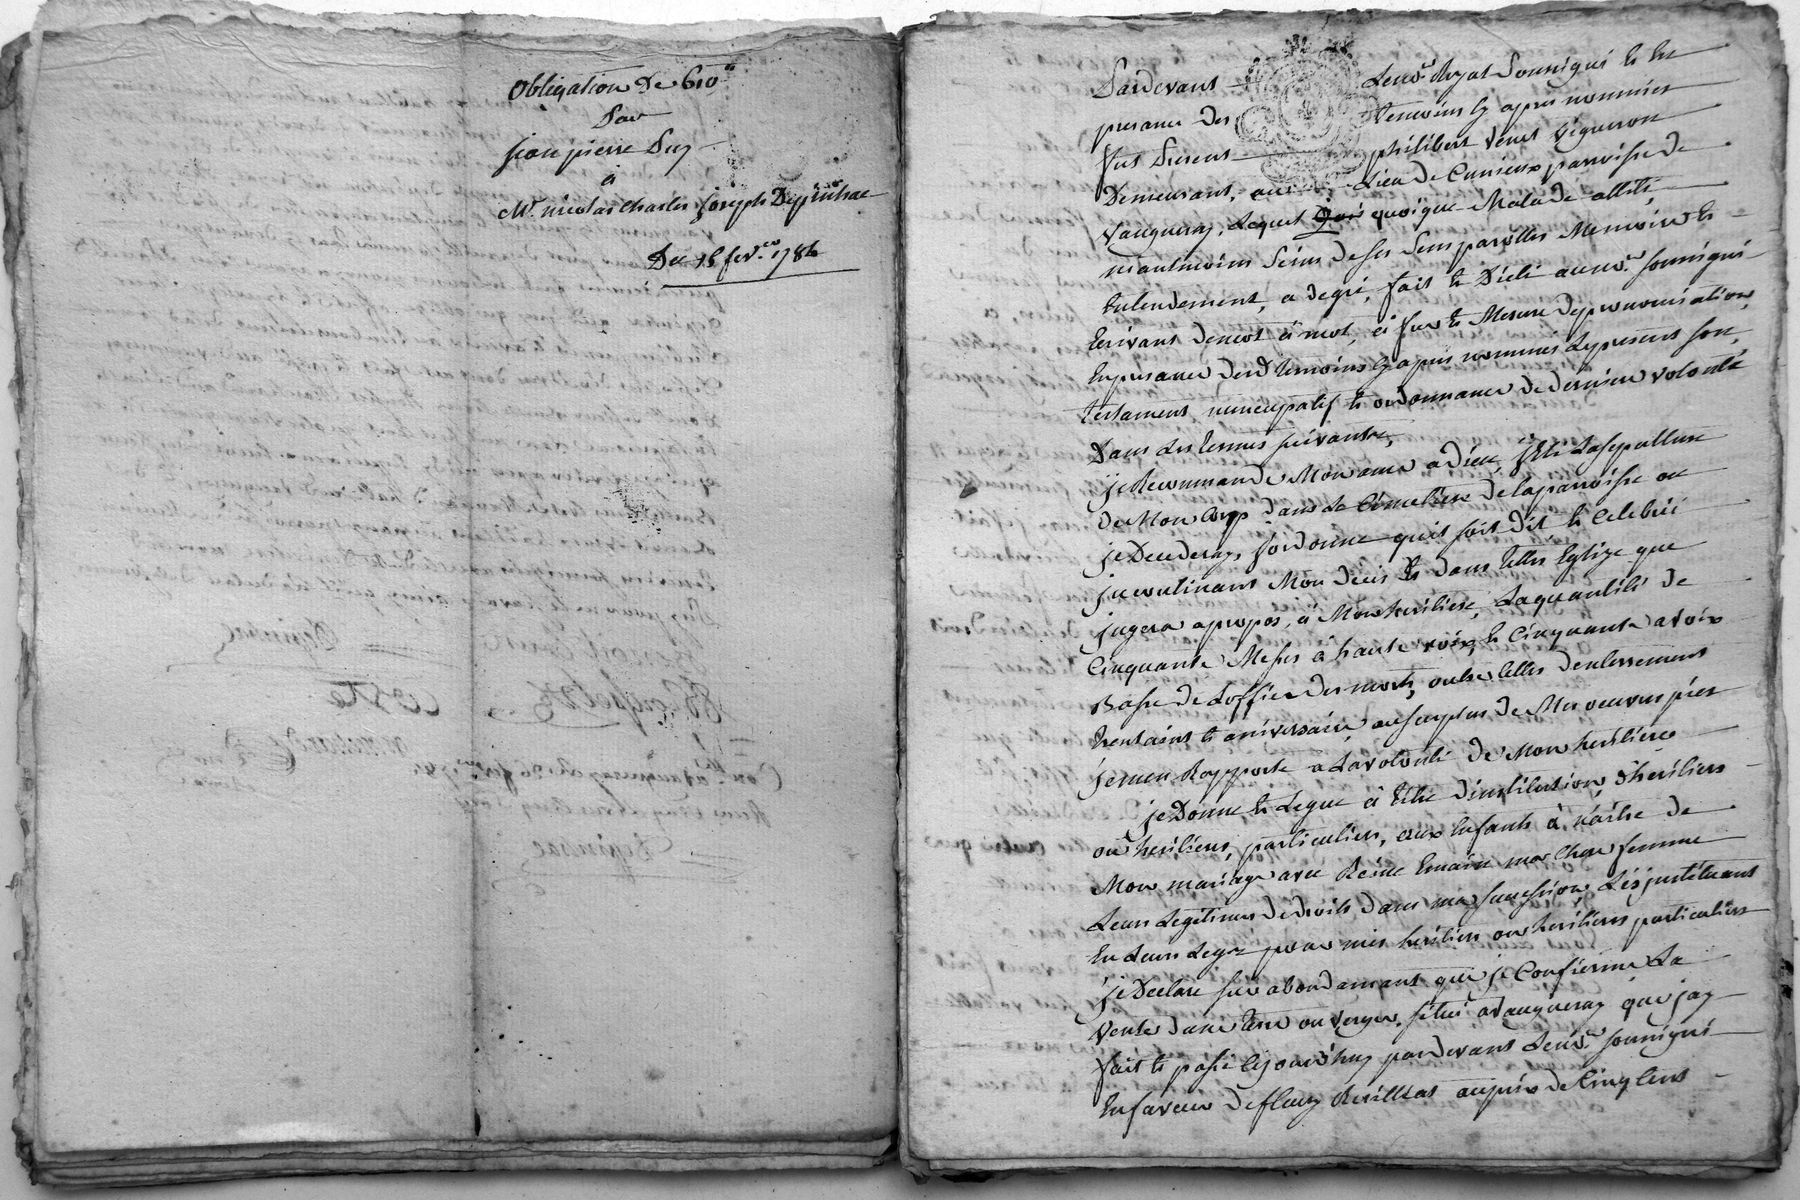 Obligation de 610#
Par
jean pierre Puy
à
Mr. nicolas charles joseph Depinhac
Du 15 fevr. 1784
Pardevant Le nore. Royal Soussigné et En
presance des temoins cy apres nommés
fut Present philibert venet vigneron
Demeurant, au Lieu de Cunieux parroisse de
Vaugneray, Lequel quoique Malade allité,
neantmoins Seins de ses Sens parolles Memoire Et
Entendement, a degré, fait et Dicté au nore. soussigné
Ecrivant demot à mot, et à Mesure de prononciation,
En presance desd. temoins cy apres nommés Le present son
testament nuncupatif et ordonnance de derniere volonté
Dans Les termes suivants,
je Recommande Mon ame a Dieu, jElis La sepulture
de Mon Corp dans Le Cimetiere de la parroisse ou
je Decederay, jordonne quil soit dit et Celebré
jncontinant Mon décés Et dans telles Eglize que
jugera apropos, à Mon heritiere, La quantité de
Cinquante Messes à haute voix, et Cinquante a voix
Basse de Loffice des morts, outre celles denterrement
trentaine et aniversaire, au surplus de Mes oeuvres pies
je men Rapporte a La volonté de Mon heritiere
je Donne et Legue à titre dinstitution d'heritiers
ou heritieres, particuliers, aux Enfants à naitre de
Mon mariage avec Reine Emain ma chere femme
Leurs Legitimes de droits dans ma succession, Les jnstituant
En Leurs Legs pour mes heritiers ou heritieres particuliers
je Declare sur abondamant que je Confierme La
Vente dune terre ou verger, situé a vaugneray que jay
fait et passé cejourd'huy pardevant Le nore. soussigné
En faveur de fleury au prix de Cinq Cent